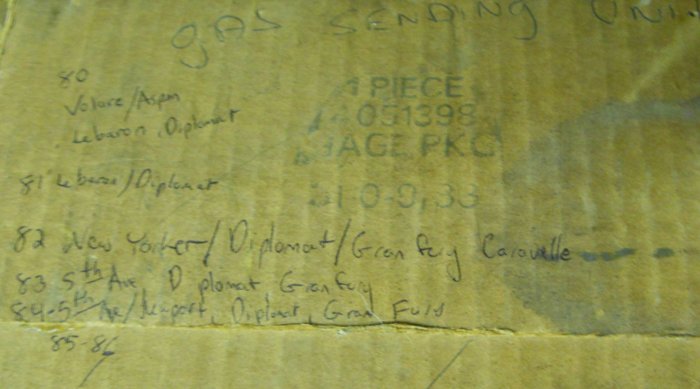 gAS SENDING UNIT
80
Volare/Aspen
Lebaron, Diplomat
1 PIECE
051398
AGE PKG
0-0,33
81 Lebaron/Diplomat
82 New Yorker/Diplomat/Gran fury Caravelle
83 5th Ave, Diplomat Gran fury
84-5th Ave/Newport, Diplomat, Gran Fury
85-86